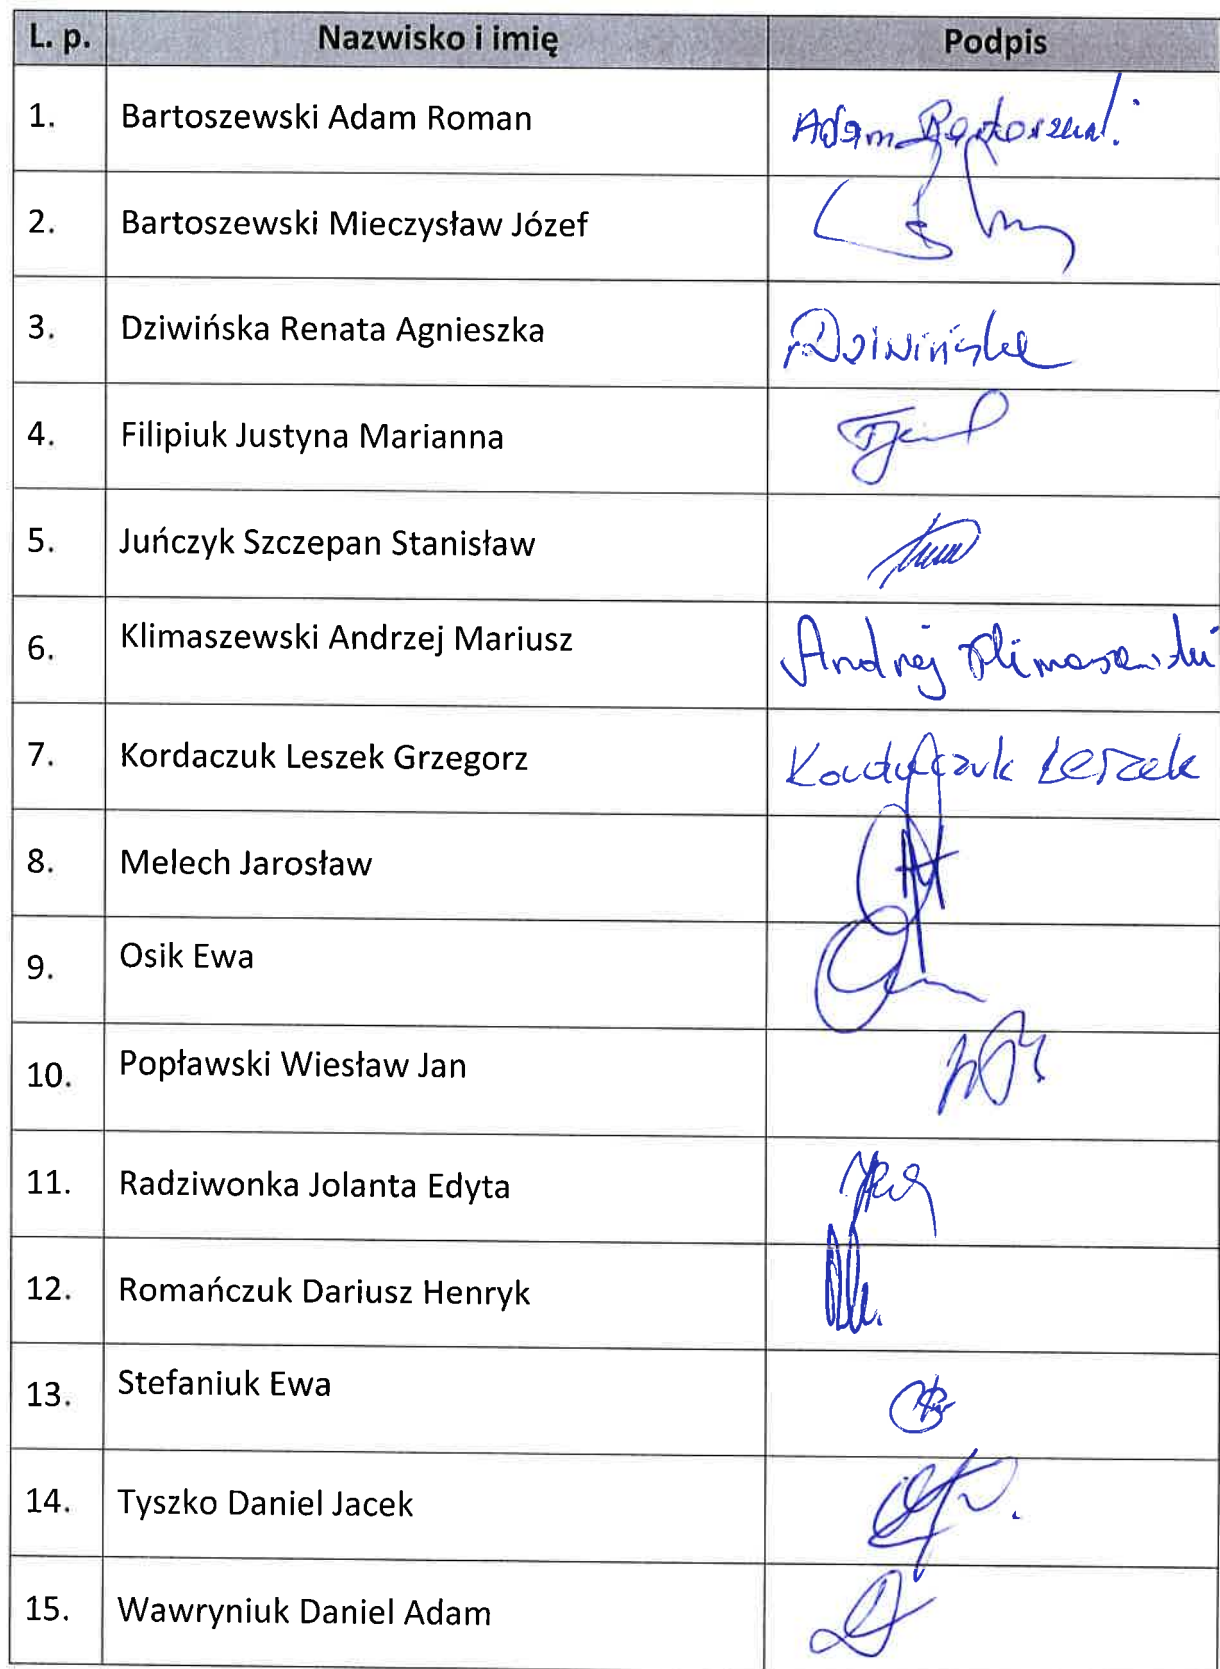 L. p. Nazwisko i imię Podpis
1. Bartoszewski Adam Roman Adam
2. Bartoszewski Mieczysław Józef
3. Dziwińska Renata Agnieszka Dziwińska
4. Filipiuk Justyna Marianna
5. Juńczyk Szczepan Stanisław
6. Klimaszewski Andrzej Mariusz
7. Kordaczuk Leszek Grzegorz Kordaczuk Leszek
8. Melech Jarosław
9. Osik Ewa
10. Popławski Wiesław Jan
11. Radziwonka Jolanta Edyta
12. Romańczuk Dariusz Henryk
13. Stefaniuk Ewa
14. Tyszko Daniel Jacek
15. Wawryniuk Daniel Adam